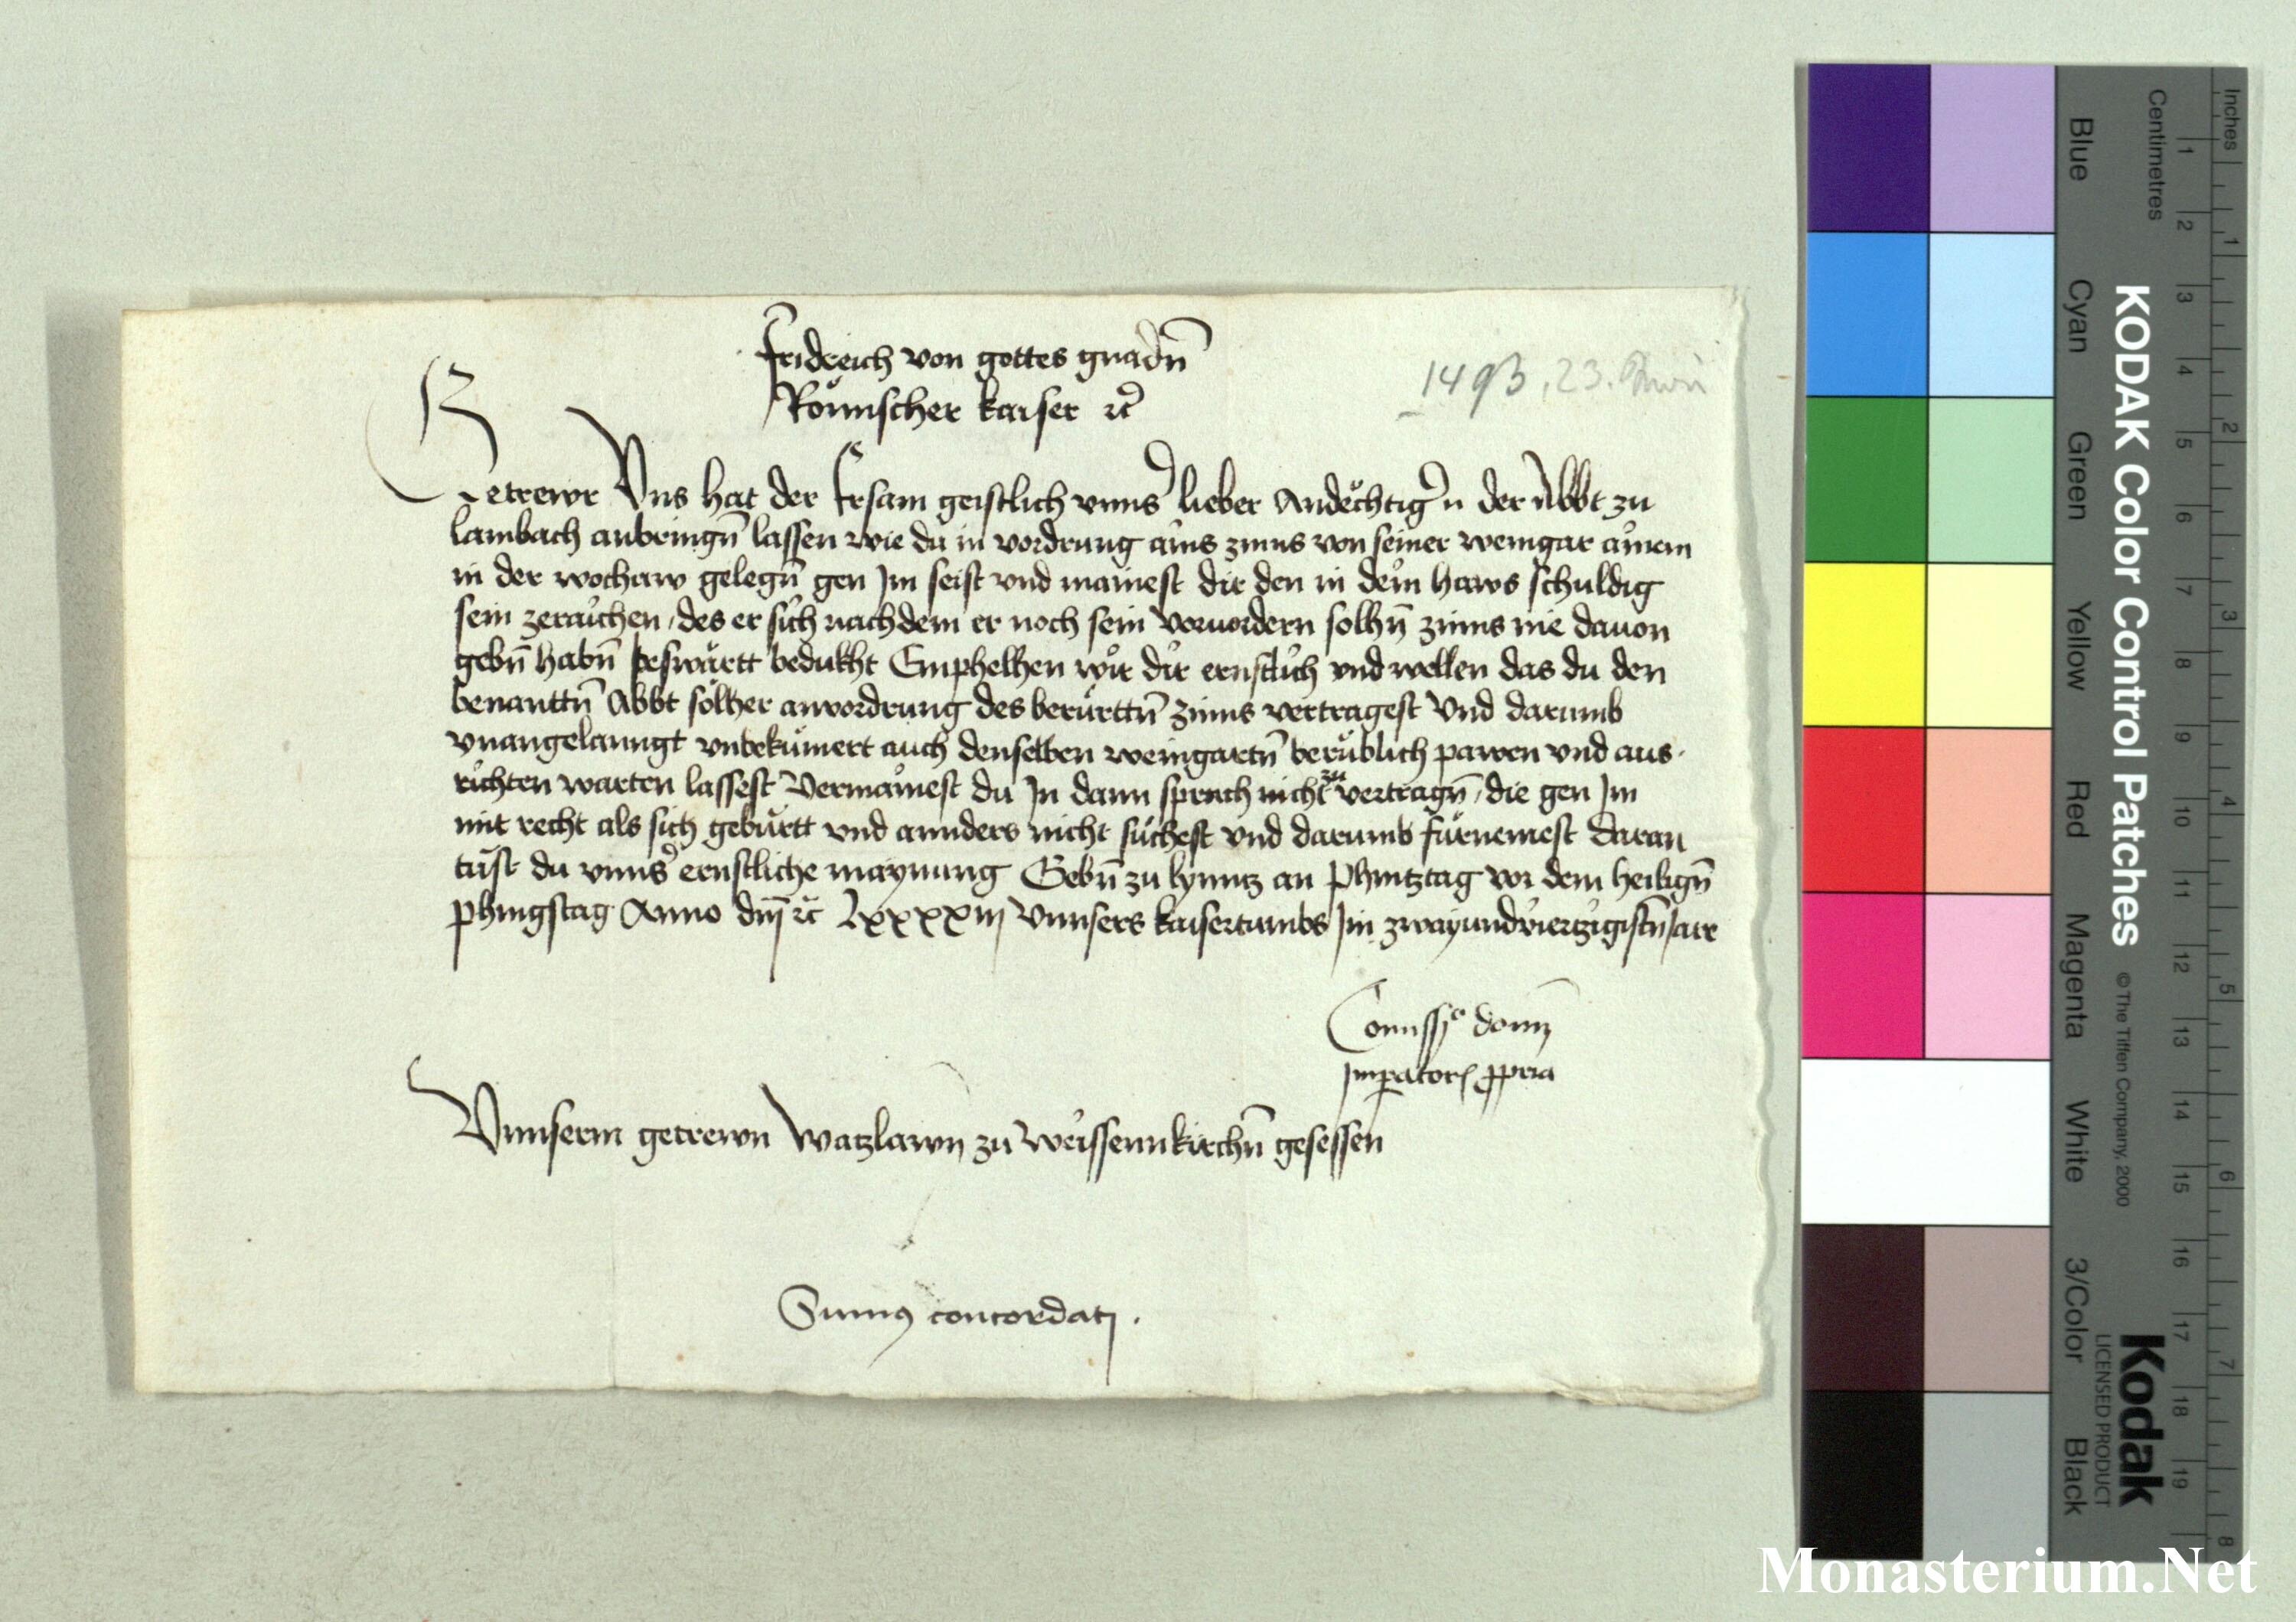 Fridreich von gottes gnadn̄
Römischer kaiser ꝛc̄
1493, 23.
Getrewr Vns hat der Ersam geistlich vnns̾ lieber Andechtig̾ N der Abbt zu
lambach anbringn̄ lassen wie du in vordrung ains zinns von seiner weingar ainem
in der wochaw gelegn̄ gen Im seist vnd mainest dir den in dein haws schuldig
sein zeraichen, des er sich nachdem er noch sein voruordern solhn̄ zinns nie dauon
gebn̄ habn̄ beswärtt bedukht Emphelhen wir dir ernstlich vnd wellen das du den
benanttn̄ Abbt sölher anvordrung des berürttn̄ zinns vertragest Vnd darumb
vnangelanngt vnbekümert auch denselben weingartn̄ berüblich pawen vnd aus-
richten warten lassest Vermainest du In dann sprach nicht zu vertragn̄, die gen Im
mit recht als sich gebürtt vnd annders nicht suchest vnd darumb fürnemest Daran
tust du vnns̾ ernstliche maynung Gebn̄ zu lynntz an Phintztag vor dem heilign̄
phingstag Anno dn̄j ꝛc̄ Lxxxxiij Vnnsers kaisertumbs Im zwayundviertzigistn̄ Jare
Comissio domīj
Imperatoris ꝓpria
Vnnserm getrewn Watzlawn zu Weissennkirchn̄ gesessen
Sumus concordati .
Inches
Centimetres
1 2 3 4 5 6 7 8 9 10 11 12 13 14 15 16 17 18 19
1 2 3 4 5 6 7 8
KODAK Color Control Patches
© The Tiffen Company, 2000
Kodak
LICENSED PRODUCT
Blue
Cyan
Green
Yellow
Red
Magenta
White
3/Color
Black
Monasterium.Net